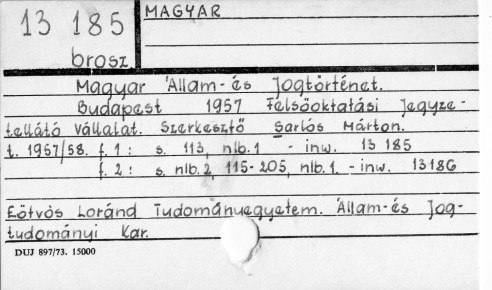 13 185
brosz
MAGYAR
Magyar Állam- és Jogtörténet.
Budapest 1957 Felsőoktatási Jegyze-
tellátó Vállalat. Szerkesztő Sarlós Márton.
t. 1957/58. f. 1 : s. 113, nlb. 1 - inw. 13 185
f. 2 : s. nlb. 2, 115-205, nlb. 1. - inw. 13186
Eötvös Loránd Tudományegyetem. Állam- és Jog-
tudományi Kar.
DUJ 897/73. 15000